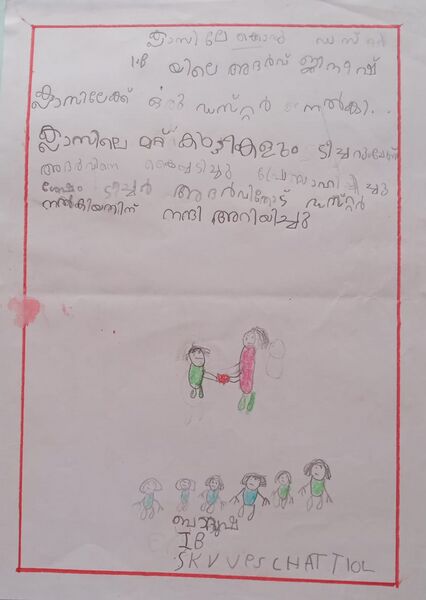 ക്ലാസിലേ ഡസ്റ്റർ
1B യിലെ അദർവ് ജിനീഷ്
ക്ലാസിലേക്ക് ഒരു ഡസ്റ്റർ നൽകി..
ക്ലാസിലെ മറ്റ് കുട്ടികളും ടീച്ചറും
അദർവിനെ കൈയ്യടിച്ചു പ്രോത്സാഹിപ്പിച്ചു
ശേഷം ടീച്ചർ അദർവിനോട് ഡസ്റ്റർ
നൽകിയതിന് നന്ദി അറിയിച്ചു
IB
SKV UPS CHATTIOL